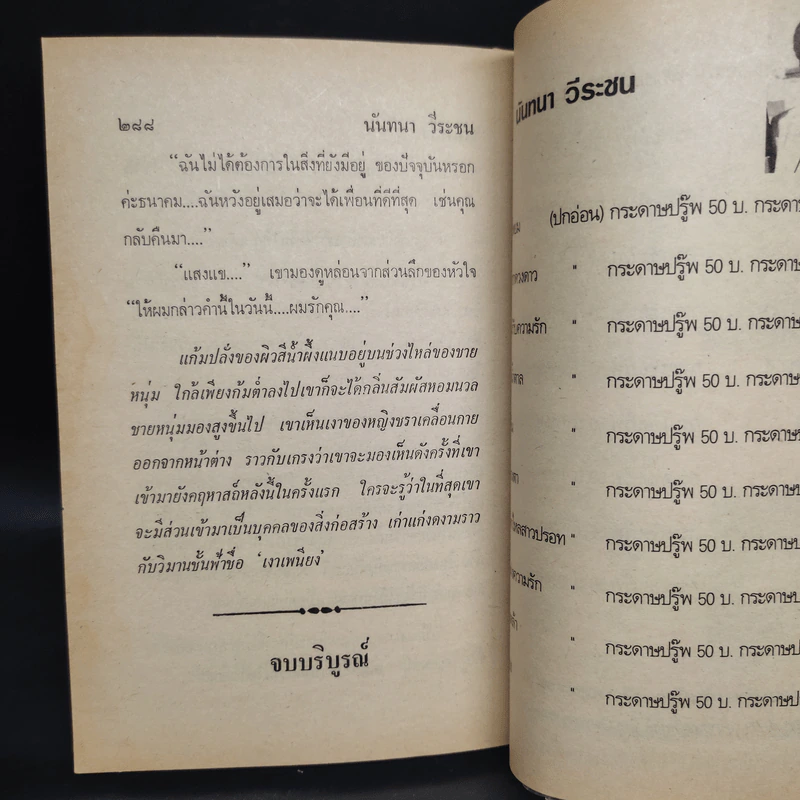 ๒๘๘ นันทนา วีระชน
“ฉันไม่ได้ต้องการในสิ่งที่ยังมีอยู่ ของปัจจุบันหรอก
ค่ะธนาคม....ฉันหวังอยู่เสมอว่าจะได้เพื่อนที่ดีที่สุด เช่นคุณ
กลับคืนมา....”
“แสงแข....” เขามองดูหล่อนจากส่วนลึกของหัวใจ
“ให้ผมกล่าวคำนี้ในวันนี้....ผมรักคุณ....”
แก้มปลั่งของผิวสีน้ำผึ้งแนบอยู่บนช่วงไหล่ของชาย
หนุ่ม ใกล้เพียงก้มต่ำลงไปเขาก็จะได้กลิ่นสัมผัสหอมนวล
ชายหนุ่มมองสูงขึ้นไป เขาเห็นเงาของหญิงชราเคลื่อนกาย
ออกจากหน้าต่าง ราวกับเกรงว่าเขาจะมองเห็นดังครั้งที่เขา
เข้ามายังคฤหาสถ์หลังนี้ในครั้งแรก ใครจะรู้ว่าในที่สุดเขา
จะมีส่วนเข้ามาเป็นบุคคลของสิ่งก่อสร้าง เก่าแก่งดงามราว
กับวิมานชั้นฟ้าชื่อ ‘เงาเพนียง’
จบบริบูรณ์
นันทนา วีระชน
(ปกอ่อน) กระดาษปรู๊พ 50 บ. กระดา
" กระดาษปรู๊พ 50 บ. กระดา
ความรัก " กระดาษปรู๊พ 50 บ. กระดาษ
" กระดาษปรู๊พ 50 บ. กระดาษ
" กระดาษปรู๊พ 50 บ. กระดาษ
" กระดาษปรู๊พ 50 บ. กระดาษ
สาวปรอท " กระดาษปรู๊พ 50 บ. กระดาษ
ความรัก " กระดาษปรู๊พ 50 บ. กระดาษ
" กระดาษปรู๊พ 50 บ. กระดาษ
" กระดาษปรู๊พ 50 บ. กระดาษ